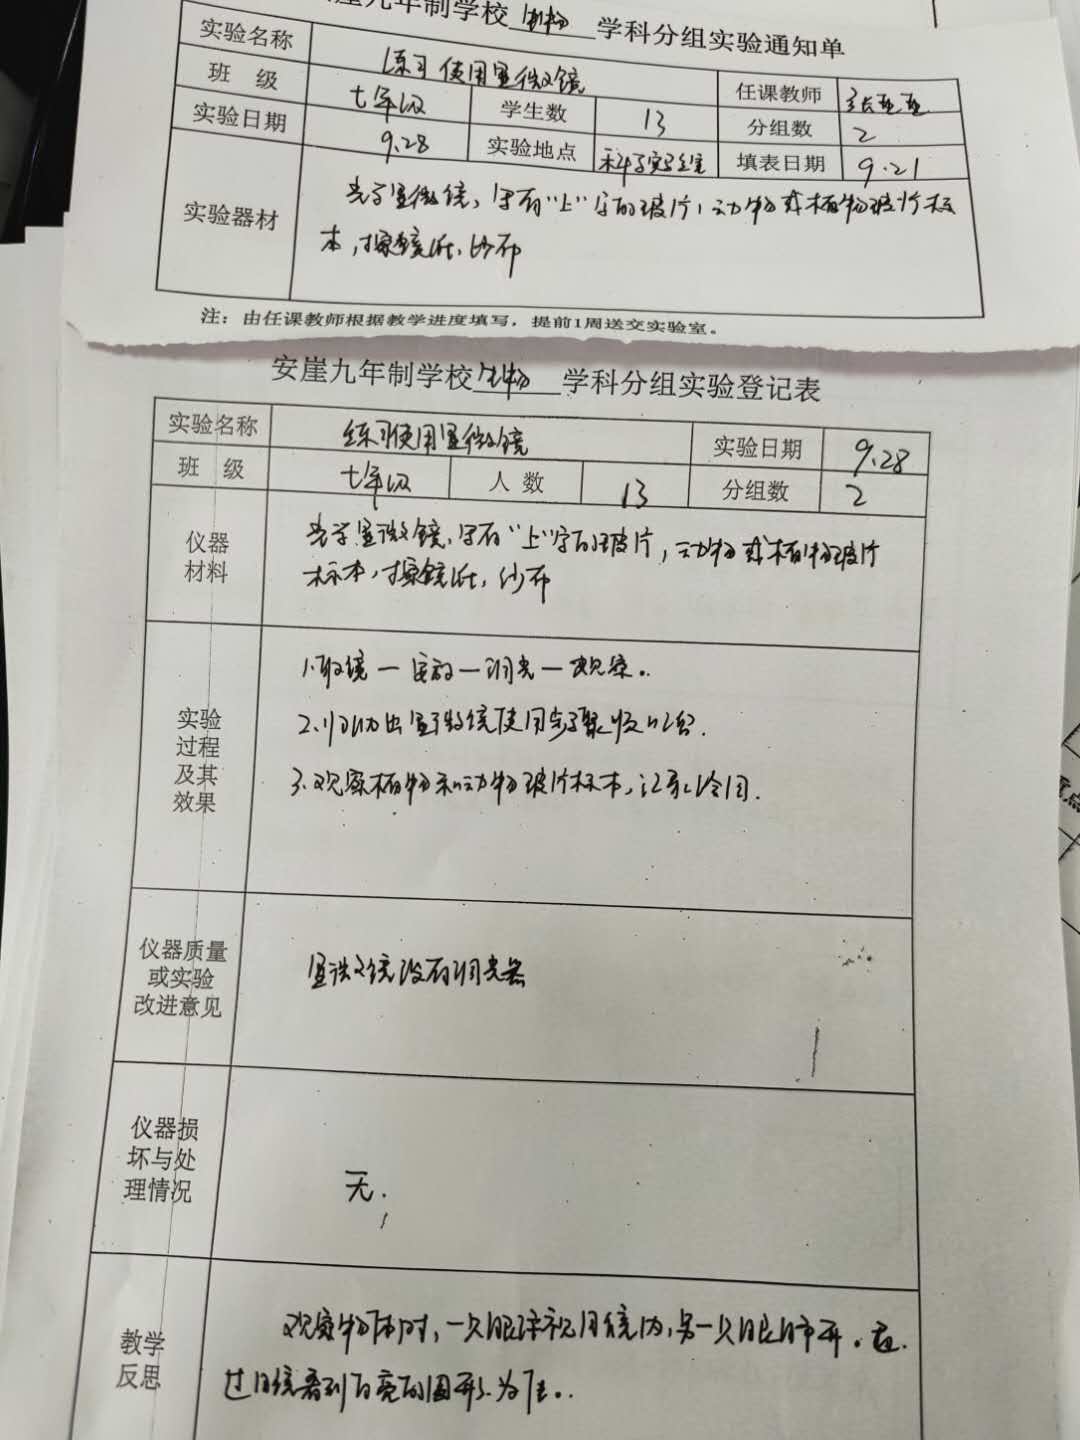 安崖九年制学校 生物 学科分组实验通知单
实验名称 练习使用显微镜 任课教师
班 级 七年级 学生数 13 分组数 2
实验日期 9.28 实验地点 科学实验室 填表日期 9.21
实验器材 光学显微镜，写有“上”字的玻片，动物或植物玻片标
本，擦镜纸，纱布
注：由任课教师根据教学进度填写，提前1周送交实验室。
安崖九年制学校 生物 学科分组实验登记表
实验名称 练习使用显微镜 实验日期 9.28
班 级 七年级 人 数 13 分组数 2
仪器
材料
光学显微镜，写有“上”字的玻片，动物或植物玻片
标本，擦镜纸，纱布
实验
过程
及其
效果
1.取镜一安放一对光一观察..
2.归纳出显微镜使用步骤
3.观察植物和动物玻片标本，记录绘图.
仪器质量
或实验
改进意见
显微镜没有
仪器损
坏与处
理情况
无.
教学
反思
观察物体时，一只眼注视目镜内，另一只眼睁开。通
过目镜看到白亮的圆形为佳..